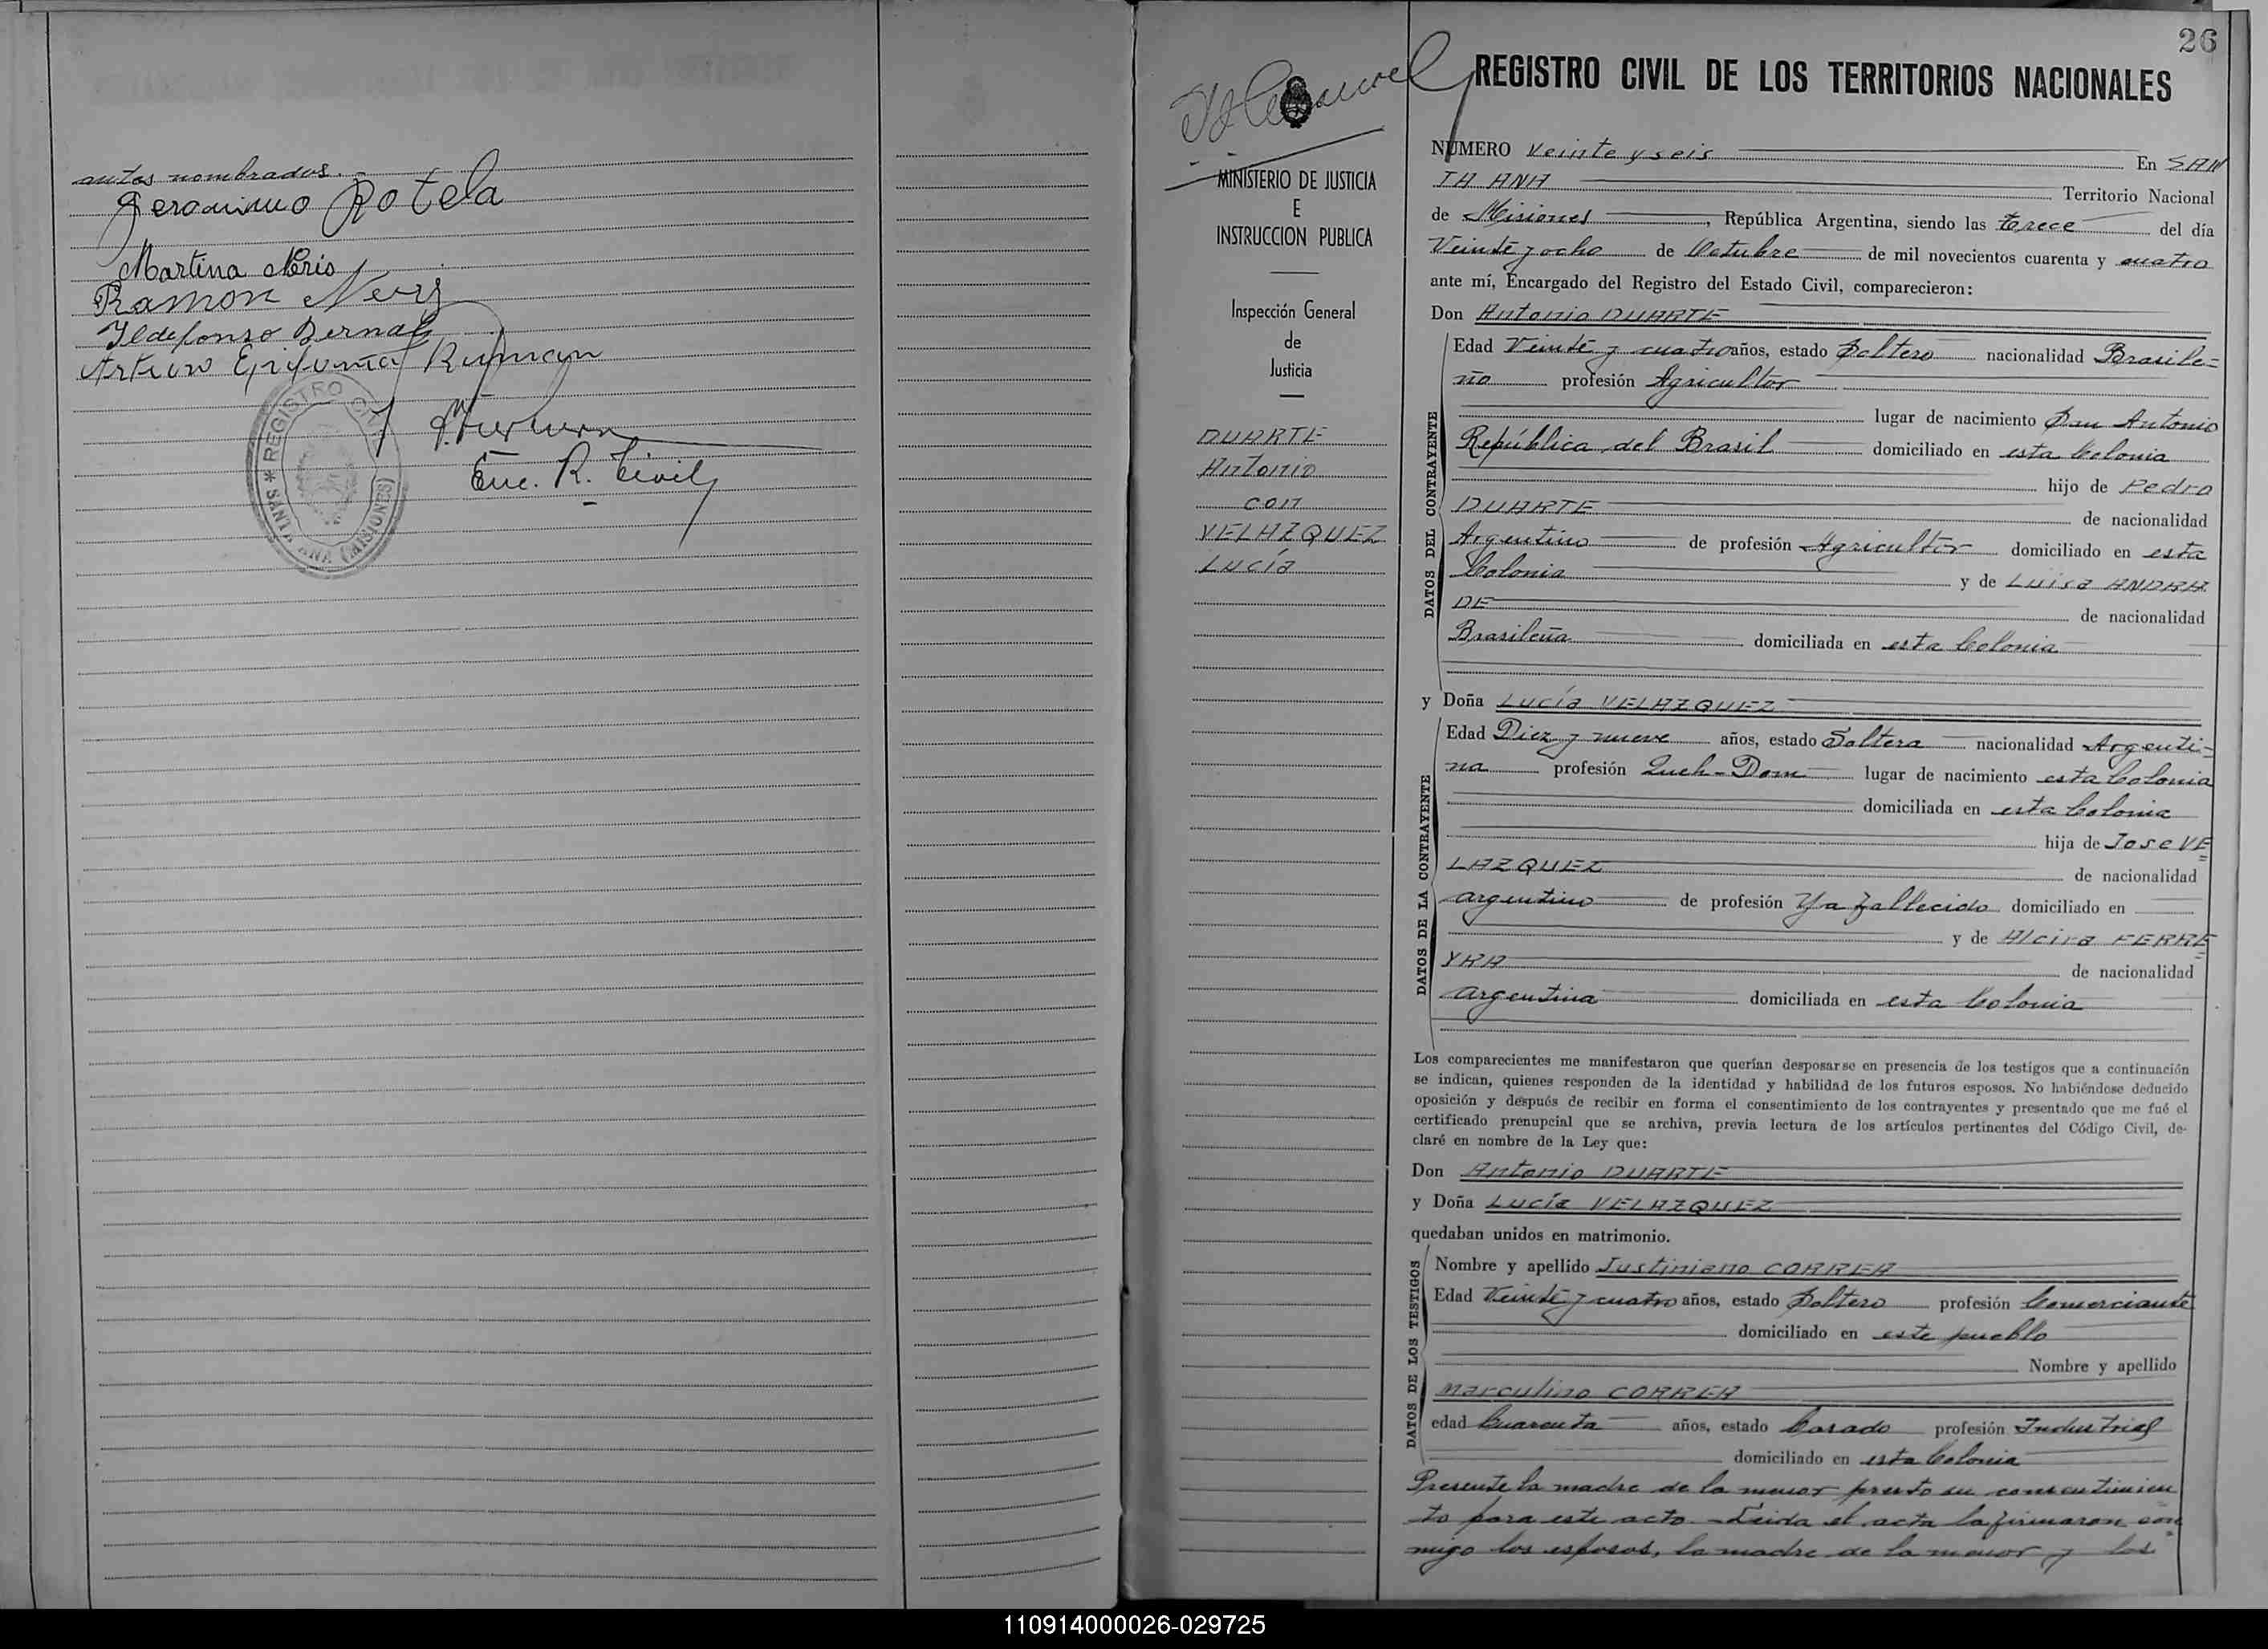 antes nombrados.
Geronimo Rotela
Martina Neris
Ramon Neris
Ildefonso Bernal
Arturo Epifanio
Enc. R. Civil
* REGISTRO CIVIL * SANTA ANA (MISIONES)
26
REGISTRO CIVIL DE LOS TERRITORIOS NACIONALES
MINISTERIO DE JUSTICIA
E
INSTRUCCION PUBLICA
Inspección General
de
Justicia
DUARTE
Antonio
con
VELAZQUEZ
Lucía
NUMERO veinte y seis En SAN
TA ANA Territorio Nacional
de Misiones, República Argentina, siendo las trece del día
Veinte y ocho de Octubre de mil novecientos cuarenta y cuatro
ante mí, Encargado del Registro del Estado Civil, comparecieron:
Don Antonio DUARTE
DATOS DEL CONTRAYENTE
Edad Veinte y cuatro años, estado Soltero nacionalidad Brasile=
ño profesión Agricultor
lugar de nacimiento San Antonio
República del Brasil domiciliado en esta Colonia
hijo de Pedro
DUARTE de nacionalidad
Argentino de profesión Agricultor domiciliado en esta
Colonia y de Luisa ANDRA
DE de nacionalidad
Brasileña domiciliada en esta Colonia
y Doña Lucía VELAZQUEZ
DATOS DE LA CONTRAYENTE
Edad Diez y nueve años, estado Soltera nacionalidad Argenti=
na profesión Queh-Dom lugar de nacimiento esta Colonia
domiciliada en esta Colonia
hija de Jose VE=
LAZQUEZ de nacionalidad
argentino de profesión Ya fallecido domiciliado en
y de Alcira FERRE=
YRA de nacionalidad
argentina domiciliada en esta Colonia
Los comparecientes me manifestaron que querían desposarse en presencia de los testigos que a continuación
se indican, quienes responden de la identidad y habilidad de los futuros esposos. No habiéndose deducido
oposición y después de recibir en forma el consentimiento de los contrayentes y presentado que me fué el
certificado prenupcial que se archiva, previa lectura de los artículos pertinentes del Código Civil, de-
claré en nombre de la Ley que:
Don Antonio DUARTE
y Doña Lucía VELAZQUEZ
quedaban unidos en matrimonio.
DATOS DE LOS TESTIGOS
Nombre y apellido Justiniano CORREA
Edad Veinte y cuatro años, estado Soltero profesión Comerciante
domiciliado en este pueblo
Nombre y apellido
Marculino CORREA
edad Cuarenta años, estado Casado profesión Industrial
domiciliado en esta Colonia
Presente la madre de la menor presto su consentimien
to para este acto. - Leida el acta la firmaron con=
migo los esposos, la madre de la menor y los
110914000026-029725